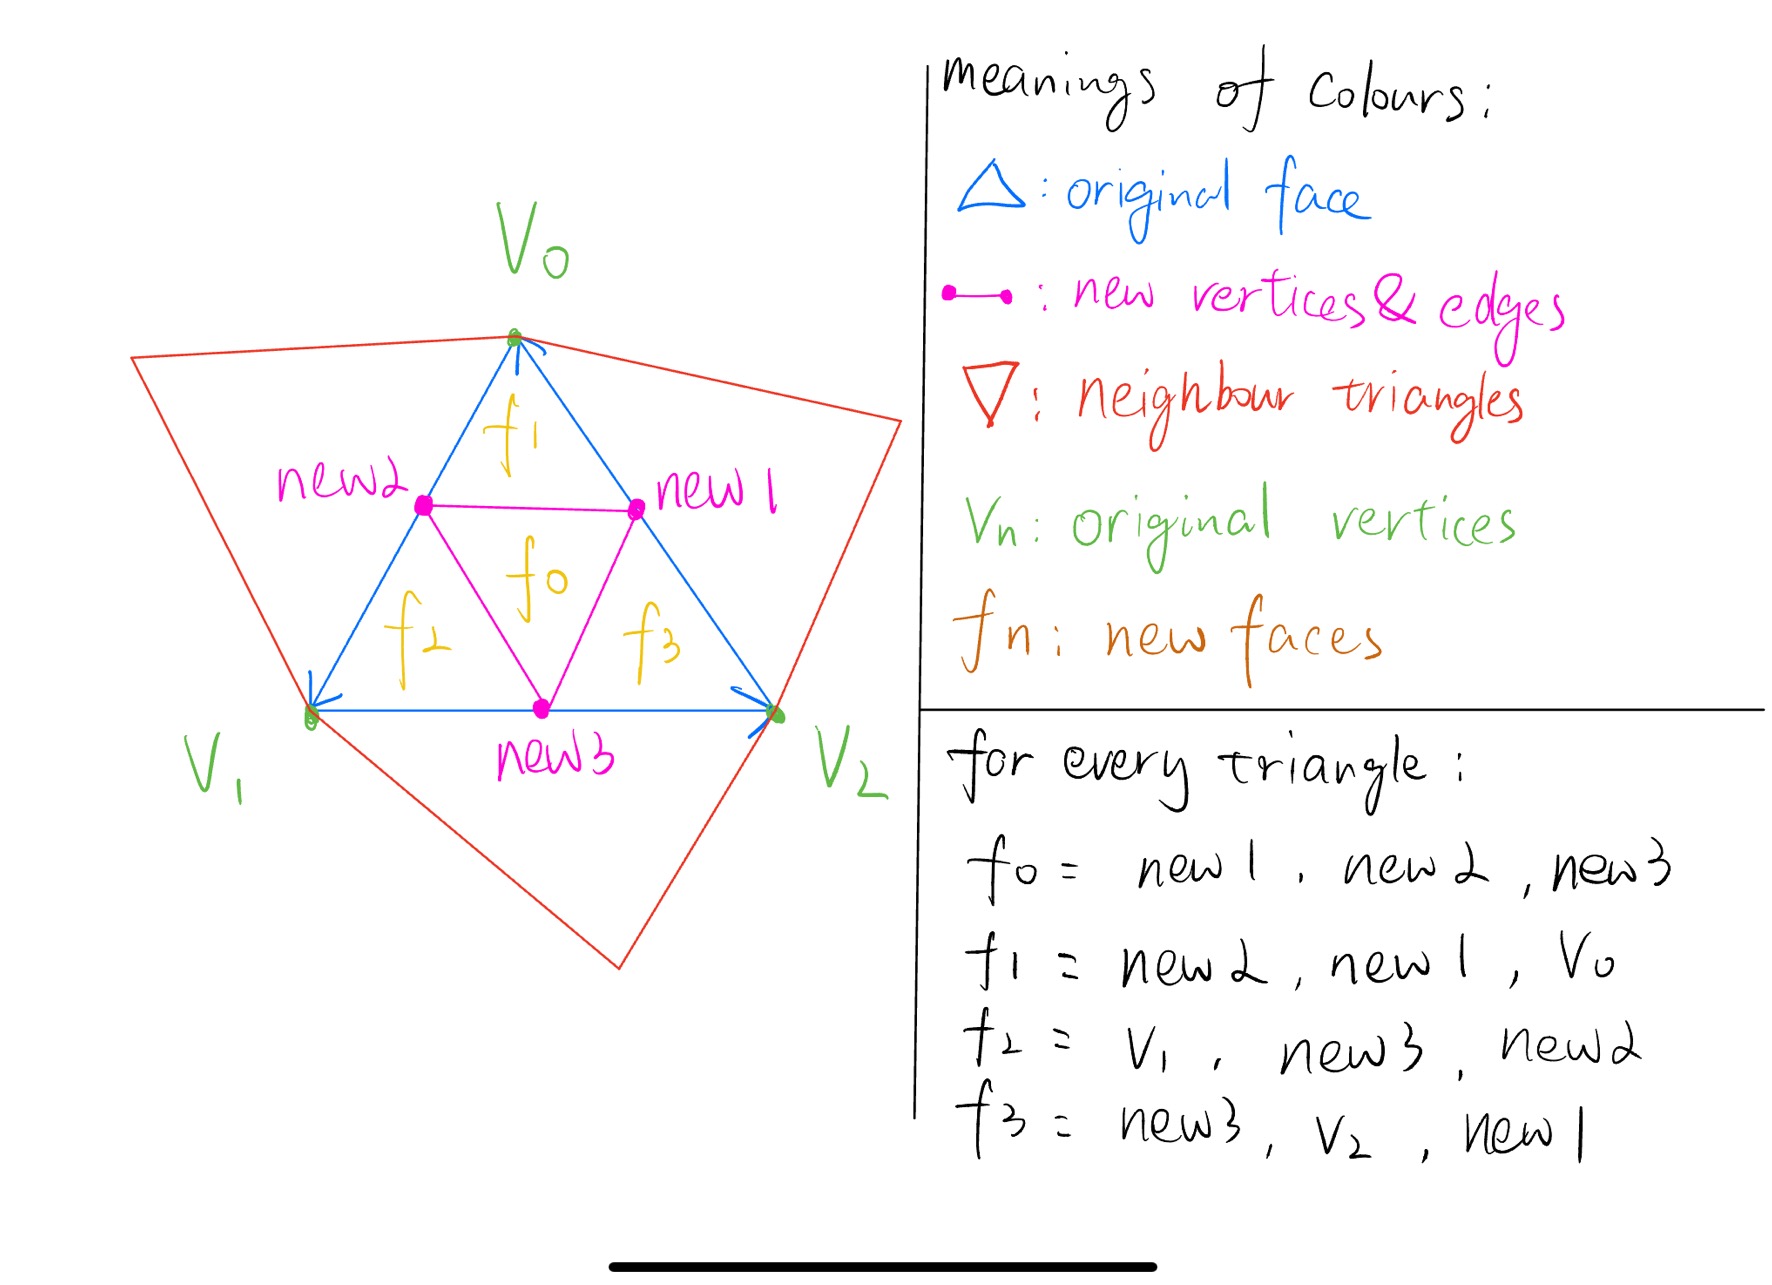 V0
f1
new2
new1
f0
f2
f3
V1
new3
V2
meanings of colours:
△: original face
: new vertices & edges
▽: neighbour triangles
Vn: original vertices
fn: new faces
for every triangle:
f0 = new1, new2, new3
f1 = new2, new1, V0
f2 = V1, new3, new2
f3 = new3, V2, new1